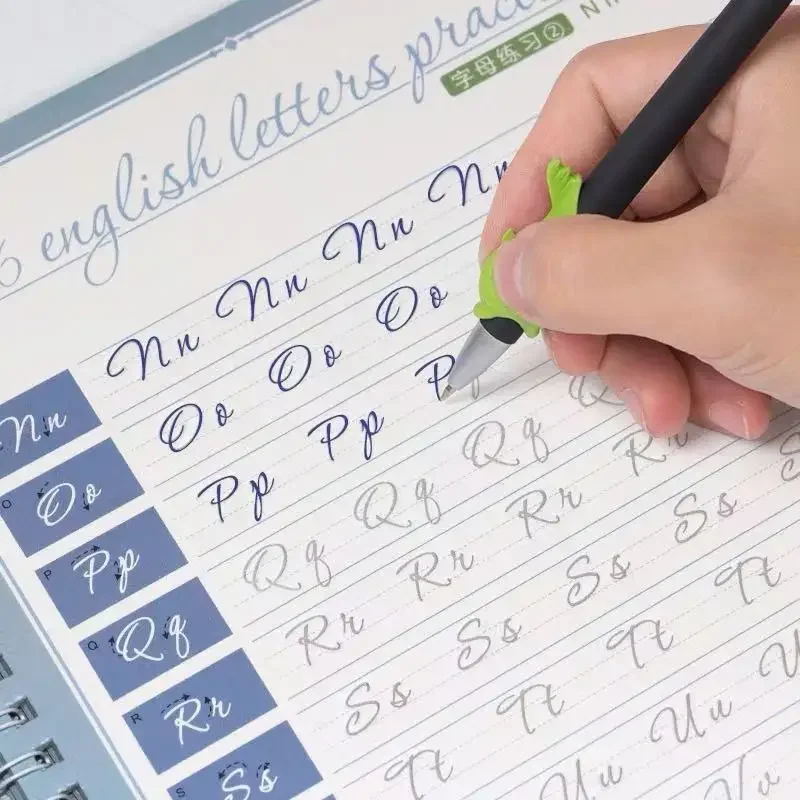 6 english letters prac
字母练习②
Nn Nn Nn Nn Nn
O Oo Oo Oo Oo
P Pp Pp Pp P
Q Qq Qq Qq Qq Q
R Rr Rr Rr Rr Rr
S Ss Ss Ss Ss Ss S
Tt Tt Tt Tt
Uu Uu U
Vv